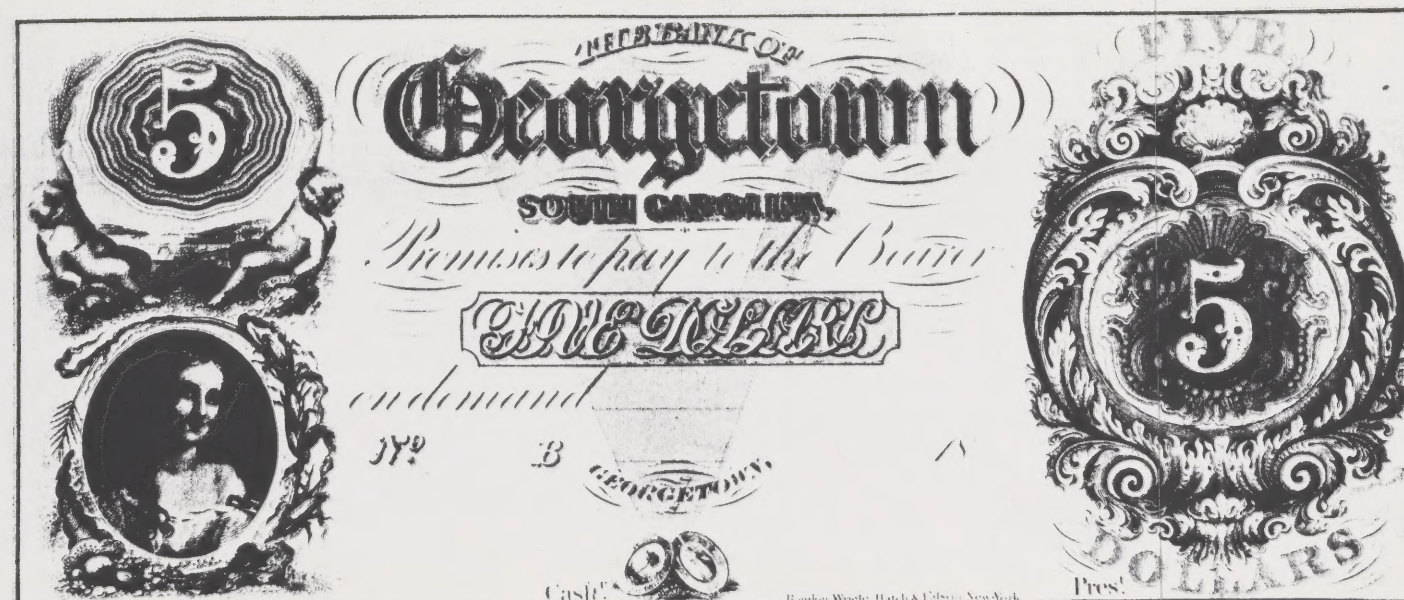 5
THE BANK OF
Georgetown
SOUTH CAROLINA,
Promises to pay to the Bearer
FIVE DOLLARS
on demand
No B
GEORGETOWN,
Cashr.
Rawdon, Wright, Hatch & Edson, New-York
FIVE
5
DOLLARS
Prest.